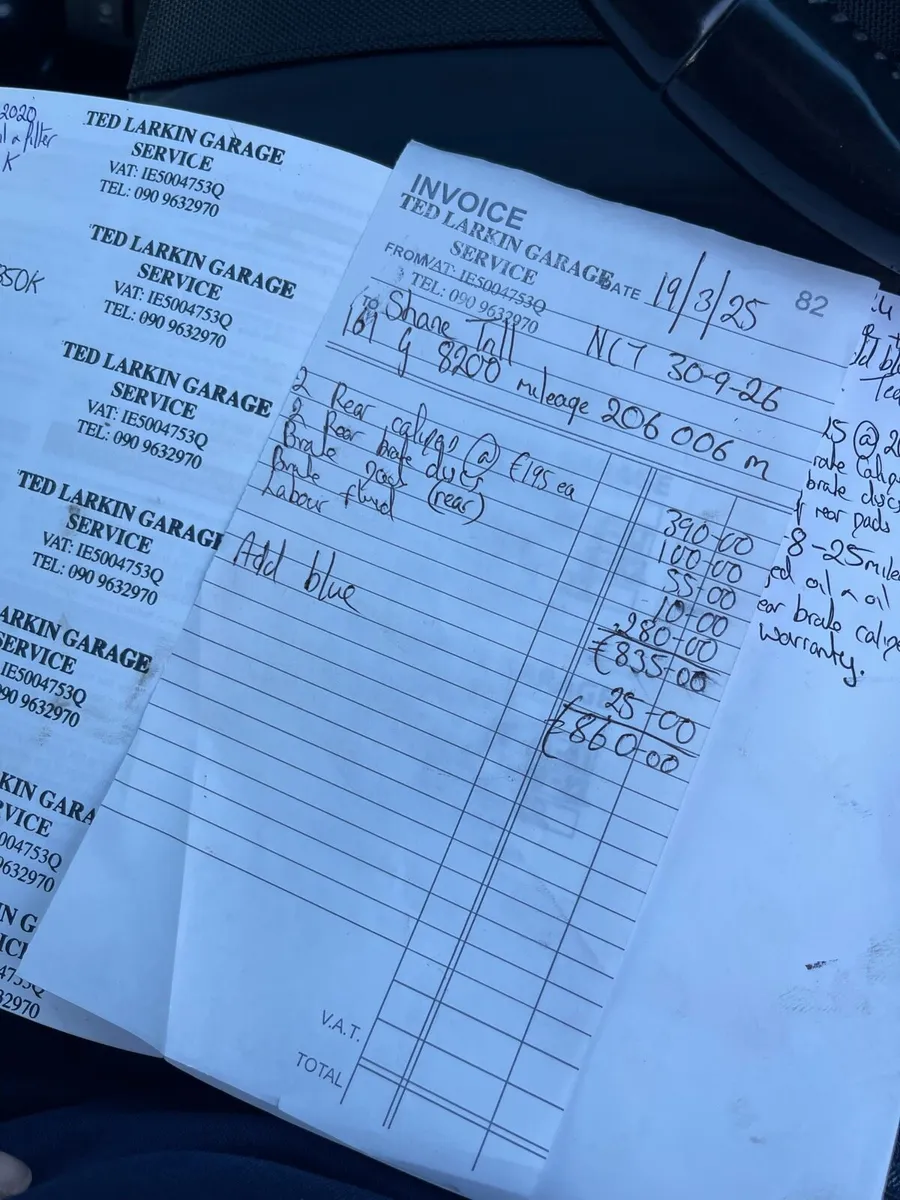 2020
filter
K
350K
TED LARKIN GARAGE
SERVICE
VAT: IE5004753Q
TEL: 090 9632970
TED LARKIN GARAGE
SERVICE
VAT: IE5004753Q
TEL: 090 9632970
TED LARKIN GARAGE
SERVICE
VAT: IE5004753Q
TEL: 090 9632970
TED LARKIN GARAGE
SERVICE
VAT: IE5004753Q
TEL: 090 9632970
ARKIN GARAGE
SERVICE
IE5004753Q
090 9632970
KIN GARA
VICE
004753Q
9632970
N G
ICE
4753Q
32970
INVOICE
TED LARKIN GARAGE
SERVICE
FROM VAT: IE5004753Q
TEL: 090 9632970
DATE 19/3/25
82
TO Shane NCT 30-9-26
161 G 8200 mileage 206 006 m
2 Rear calipers @ €195 ea 390-00
2 Rear brake discs 100-00
Brake pads (rear) 55-00
Brake fluid 10-00
Labour 280-00
€835-00
Add blue 25-00
€860-00
V.A.T.
TOTAL
brake discs
rear pads
8-25 mile
oil
brake
warranty.